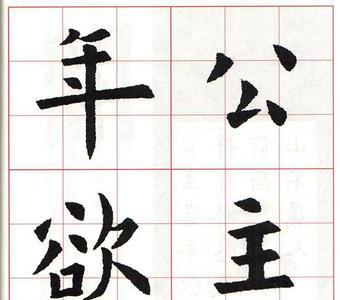 公主
年欲